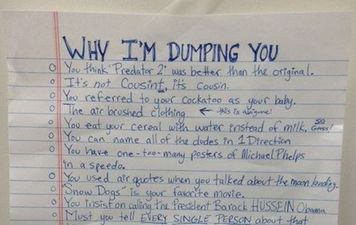 WHY I'M DUMPING YOU
You think "Predator 2" was better than the original.
It's not Cousint, it's cousin.
You referred to your cockatoo as your baby.
The air brushed clothing ← this is anigume!
You eat your cereal with water instead of milk. SO GROSS!
You can name all of the dudes in 1 Direction
You have one-too-many posters of Michael Phelps
in a speedo.
You used air quotes when you talked about the moon landing.
"Snow Dogs" is your favorite movie.
You insist on calling the President Barack HUSSEIN Obama
Must you tell EVERY SINGLE PERSON about that